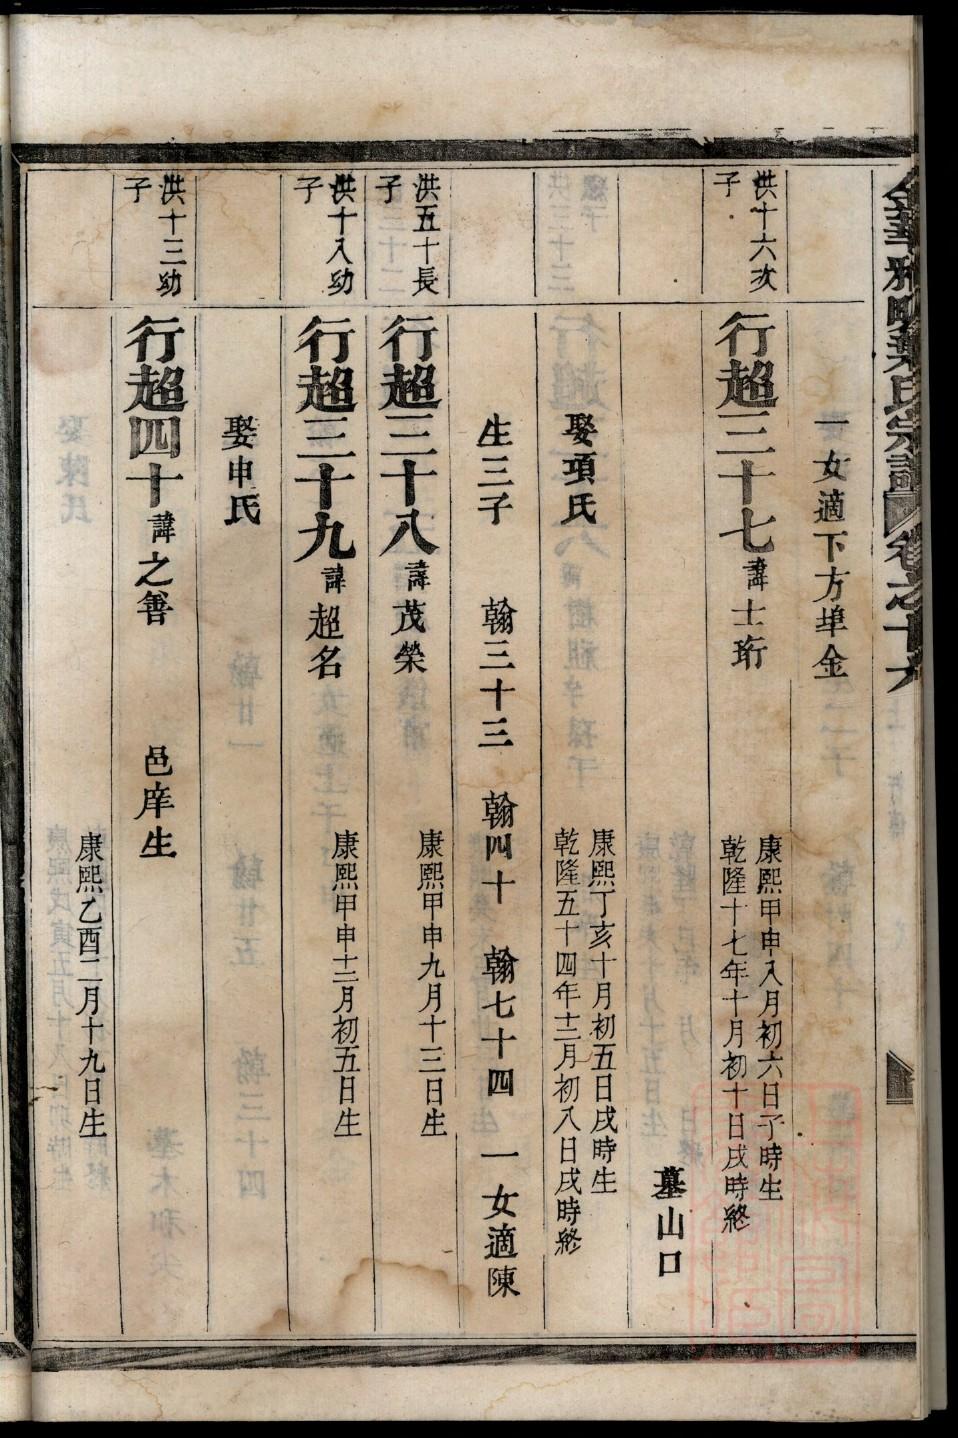 一女適下方埠金
洪十六次子
行超三十七諱士珩
康熙甲申八月初六日子時生
乾隆十七年十月初十日戌時終
墓山口
娶項氏
康熙丁亥十月初五日戌時生
乾隆五十四年十二月初八日戌時終
生三子 翰三十三 翰四十 翰七十四 一女適陳
洪五十長子
行超三十八諱茂榮
康熙甲申九月十三日生
洪十八幼子
行超三十九諱超名
康熙甲申十二月初五日生
娶申氏
洪十三幼子
行超四十諱之善 邑庠生
康熙乙酉二月十九日生